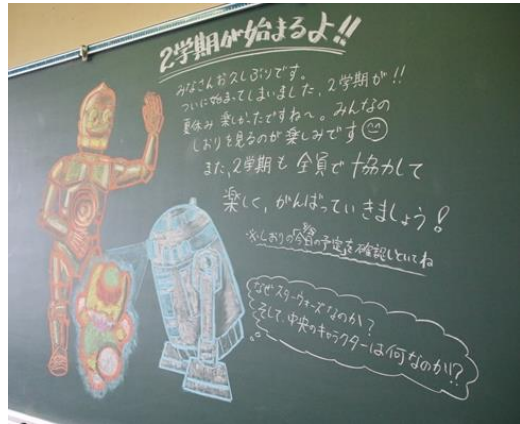 2学期が始まるよ!!
みなさんお久しぶりです。
ついに始まってしまいました、2学期が!!
夏休み楽しかったですね〜。みんなの
しおりを見るのが楽しみです
また、2学期も全員で協力して
楽しく、がんばっていきましょう!
※しおりの「今日の予定」を確認しといてね
なぜスターウォーズなのか?
そして、中央のキャラクターは何なのか!?